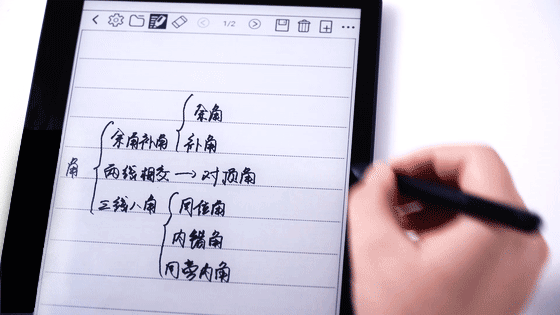 1/2
余角
余角补角
补角
角
两线相交→对顶角
三线八角
同位角
内错角
同旁内角